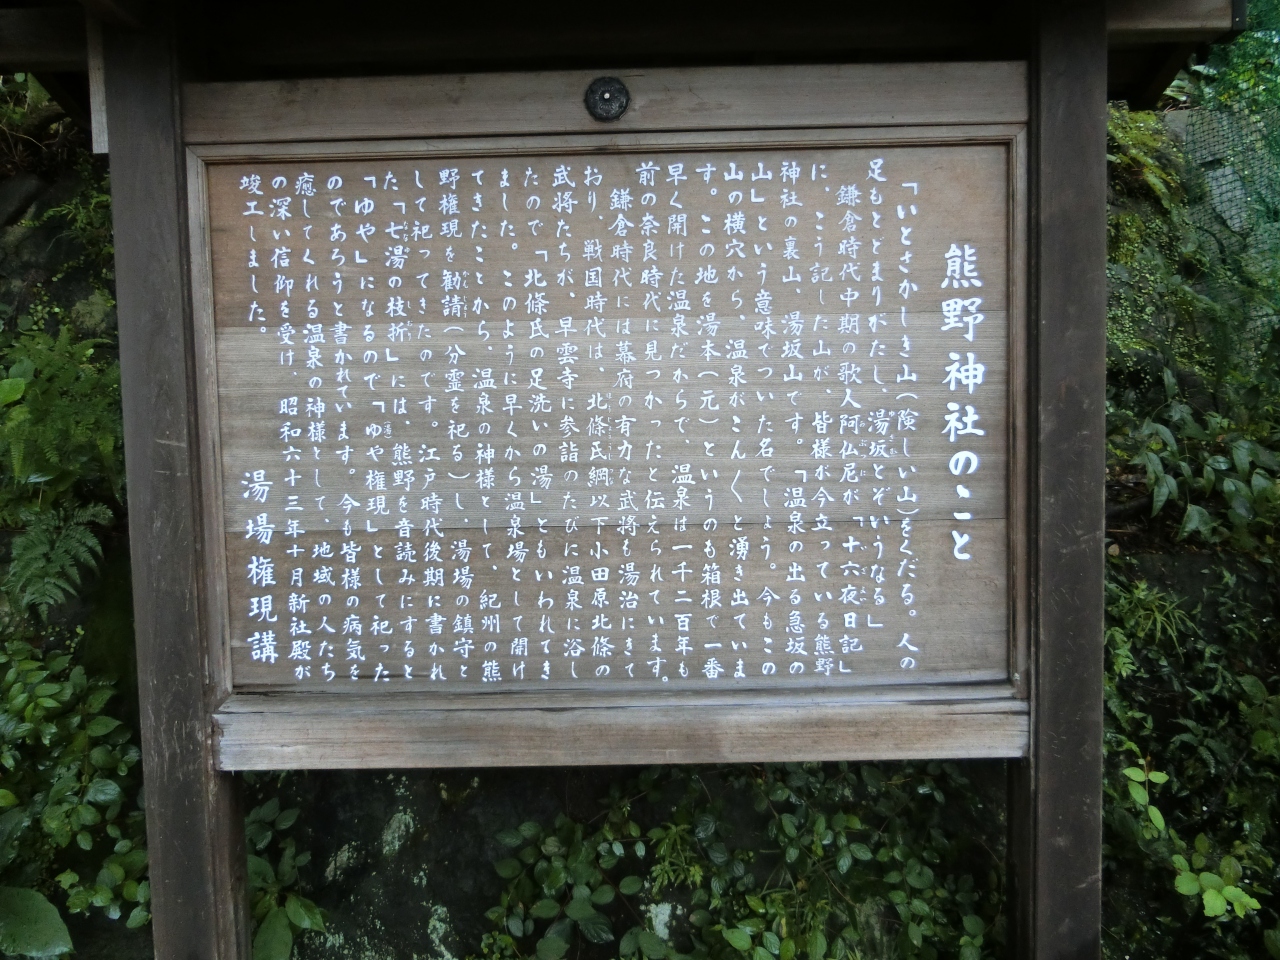 熊野神社のこと
「いとさかしき山(険しい山)をくだる。人の
足もとどまりがたし、湯坂とぞいうなる」
鎌倉時代中期の歌人阿仏尼が「十六夜日記」
に、こう記した山が、皆様が今立っている熊野
神社の裏山、湯坂山です。「温泉の出る急坂の
山」という意味でついた名でしょう。今もこの
山の横穴から、温泉がこん〱と湧き出ていま
す。この地を湯本(元)というのも箱根で一番
早く開けた温泉だからで、温泉は一千二百年も
前の奈良時代に見つかったと伝えられています。
鎌倉時代には幕府の有力な武将も湯治にきて
おり、戦国時代は、北條氏綱以下小田原北條の
武将たちが、早雲寺に参詣のたびに温泉に浴し
たので「北條氏の足洗いの湯」ともいわれてき
ました。このように早くから温泉場として開け
てきたことから、温泉の神様として、紀州の熊
野権現を勧請(分霊を祀る)し、湯場の鎮守と
して祀ってきたのです。江戸時代後期に書かれ
た「七湯の枝折」には、熊野を音読みにすると
「ゆや」になるので「ゆや権現」として祀った
のであろうと書かれています。今も皆様の病気を
癒してくれる温泉の神様として、地域の人たち
の深い信仰を受け、昭和六十三年十月新社殿が
竣工しました。
湯場権現講